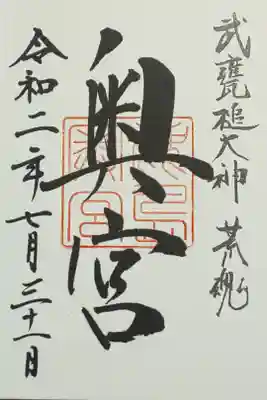 武甕槌大神 荒魂
奥宮
令和二年七月三十一日